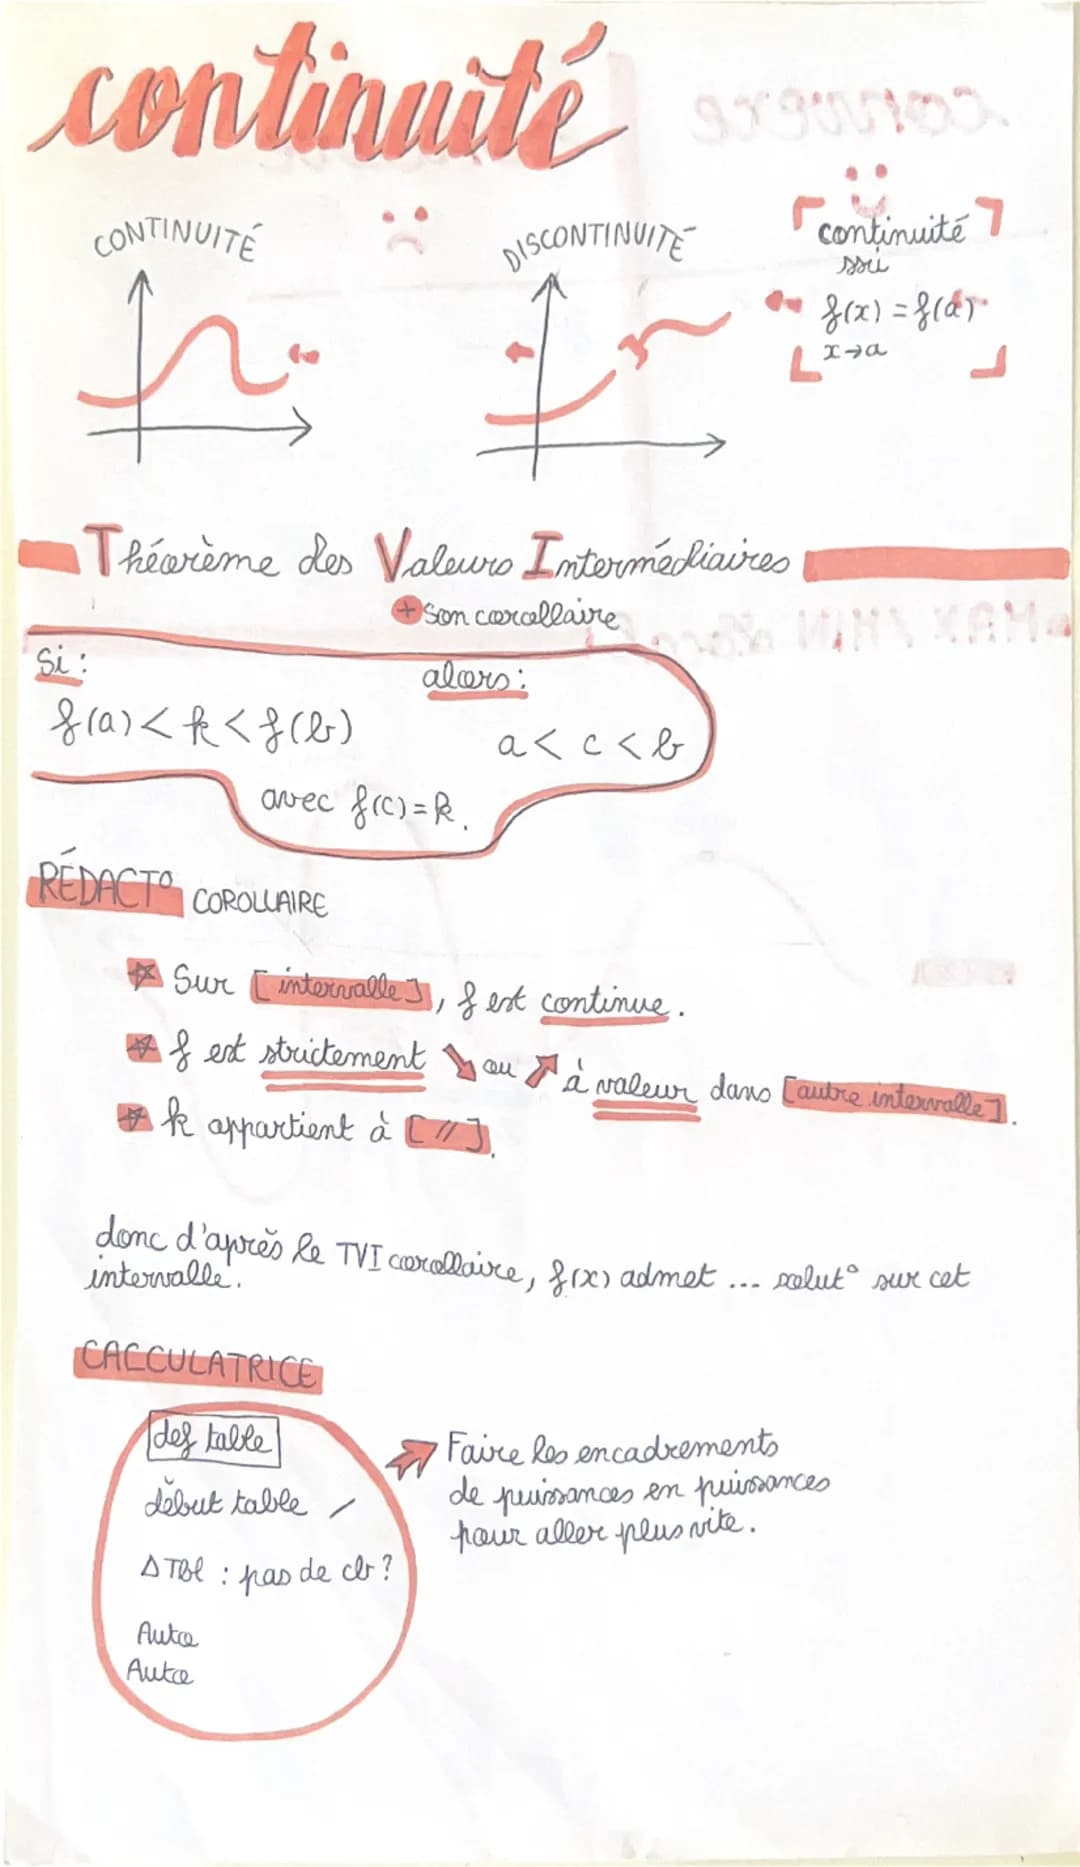 continuité
CONTINUITÉ
DISCONTINUITÉ
continuité
ssi
f(x) = f(a)
x→a
Théorème des Valeurs Intermédiaires
+ son corollaire
Si :
alors :
f(a) < k < f(b)
a < c < b
avec f(c) = k.
RÉDACT° COROLLAIRE
Sur [intervalle], f est continue.
f est strictement ↘ ou ↗ à valeur dans [autre intervalle].
k appartient à [ // ].
donc d'après le TVI corollaire, f(x) admet ... solut° sur cet
intervalle.
CALCULATRICE
def table
début table
Δ Tbl : pas de cb ?
Auto
Auto
Faire les encadrements
de puissances en puissances
pour aller plus vite.